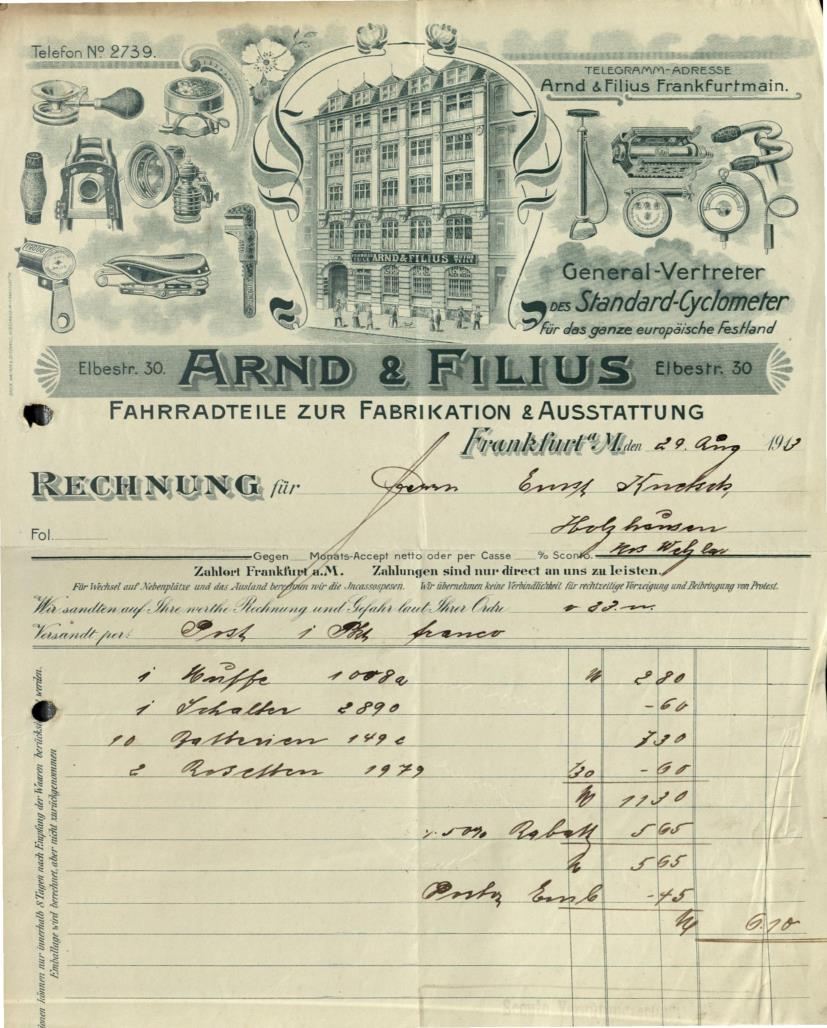 Telefon No 2739.
TELEGRAMM-ADRESSE
Arnd & Filius Frankfurtmain.
ARND & FILIUS
General-Vertreter
DES Standard-Cyclometer
für das ganze europäische Festland
Elbestr. 30. ARND & FILIUS Elbestr. 30
FAHRRADTEILE ZUR FABRIKATION & AUSSTATTUNG
Frankfurt a/M. den 29. Aug 1913
RECHNUNG für Herrn Ernst
Holzhausen
Fol. Krs Wetzlar
Gegen Monats-Accept netto oder per Casse % Sconto.
Zahlort Frankfurt a.M. Zahlungen sind nur direct an uns zu leisten.
Für Wechsel auf Nebenplätze und das Ausland berechnen wir die Incassospesen. Wir übernehmen keine Verbindlichkeit für rechtzeitige Vorzeigung und Beibringung von Protest.
Wir sandten auf Ihre werthe Rechnung und Gefahr laut Ihrer Ordre
Versandt per: Post 1 Pkt franco
1 Muffe 1008a M 2 80
1 Schalter 2890 - 60
10 Batterien 149c 7 30
2 Rosetten 1979 /30 - 60
M 11 30
./. 50% Rabatt 5 65
M 5 65
Porto Emb - 45
M 6.10
ionen können nur innerhalb 8 Tagen nach Empfang der Waaren werden.
Emballage wird berechnet, aber nicht zurückgenommen